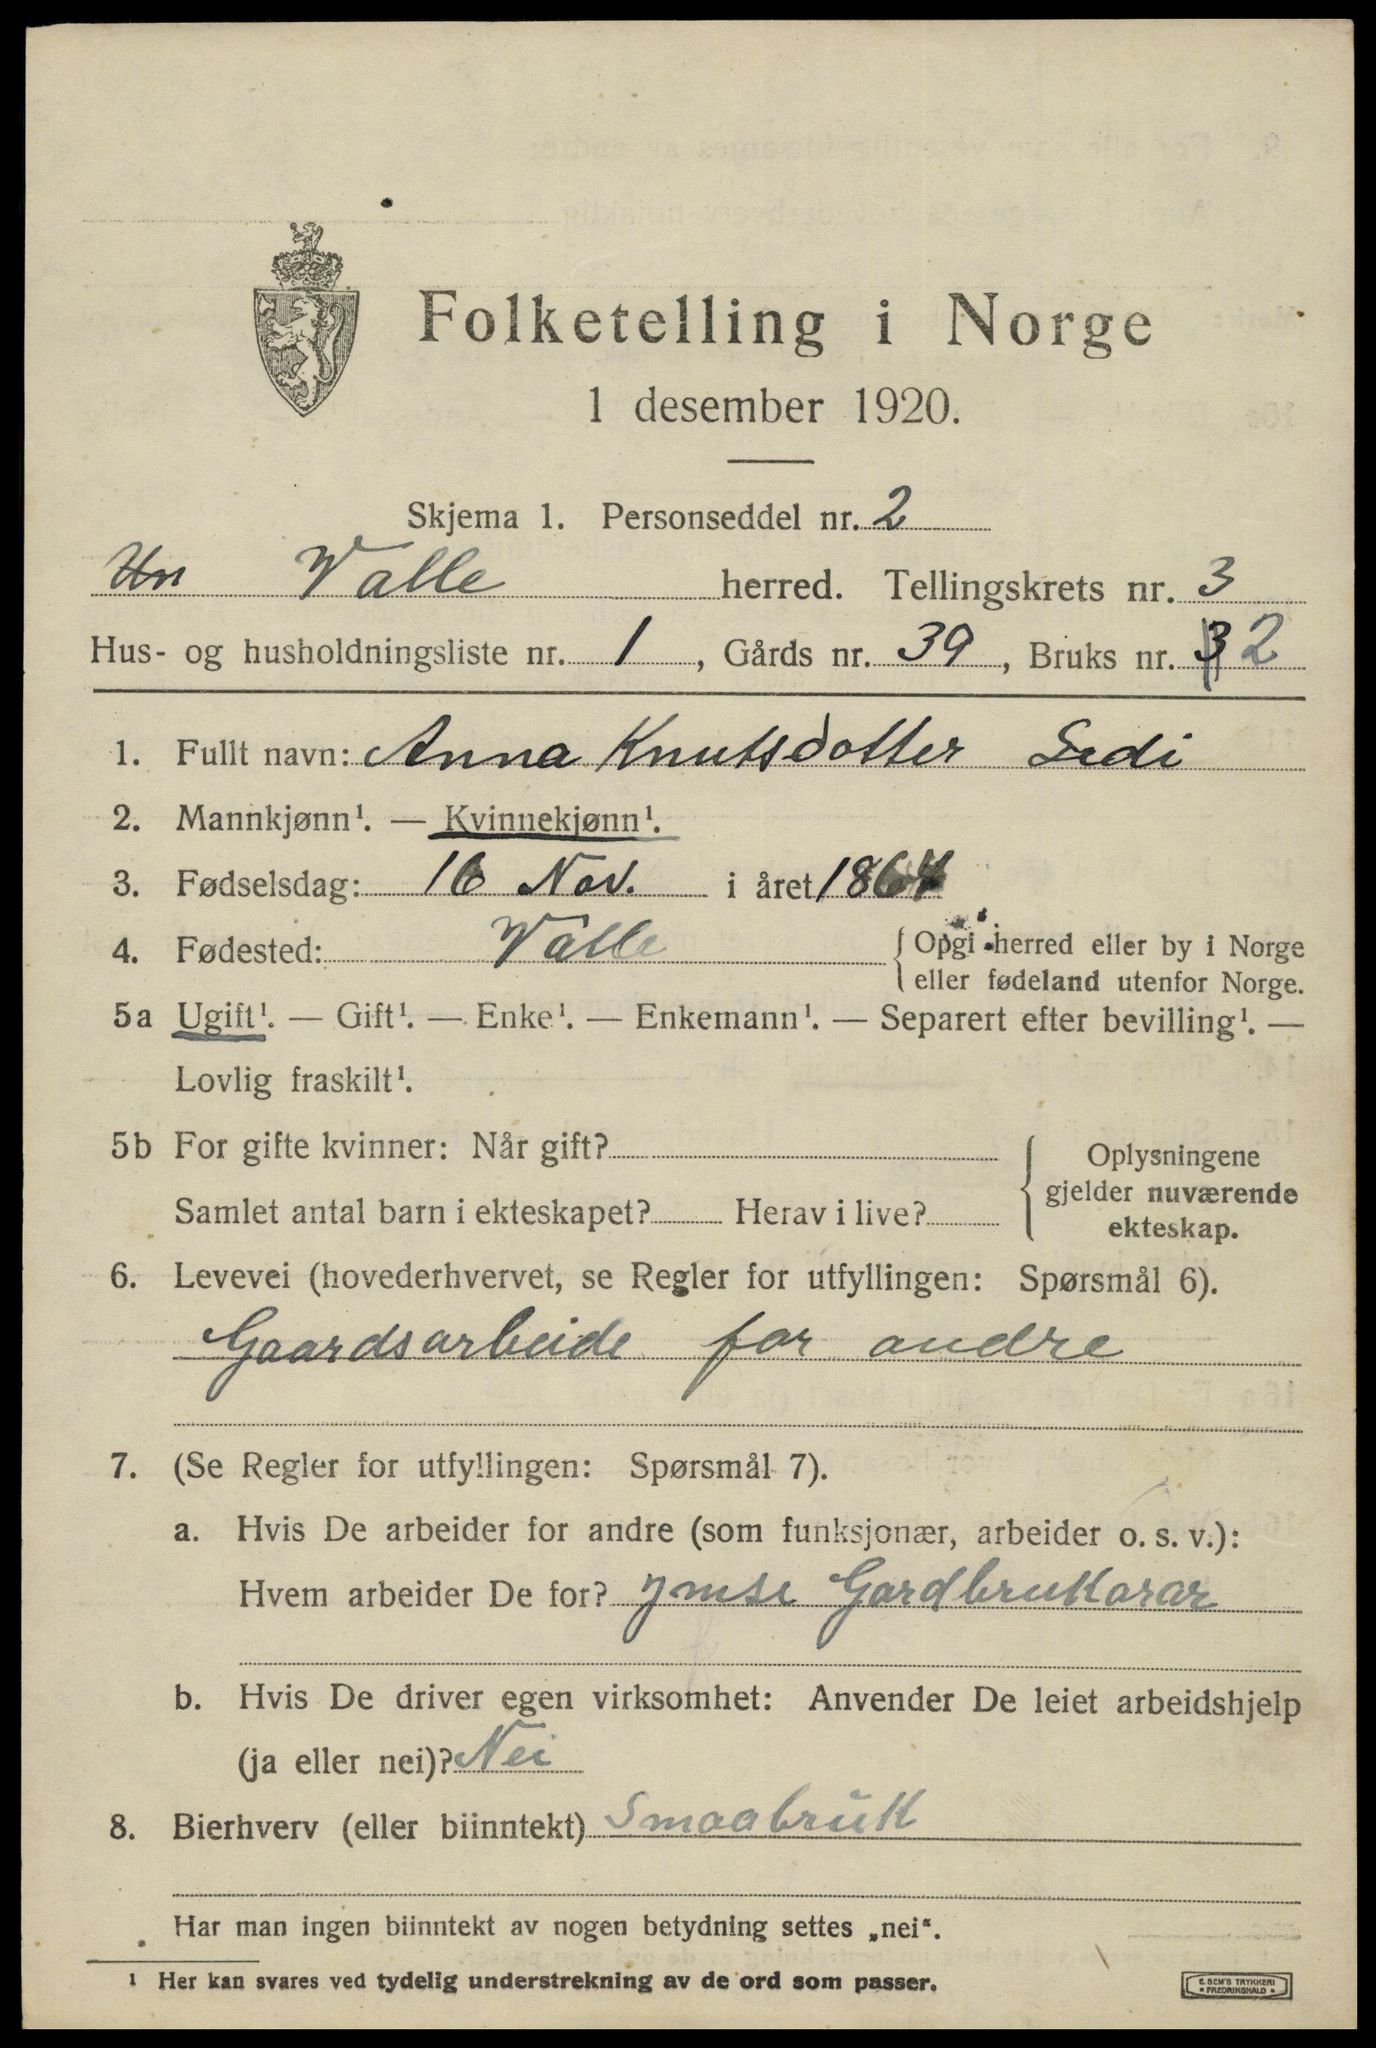 Folketelling i Norge
1 desember 1920.
Skjema 1. Personseddel nr. 2
Valle herred. Tellingskrets nr. 3
Hus- og husholdningsliste nr. 1, Gårds nr. 39, Bruks nr. 3 2
1. Fullt navn: Anna Knutsdotter
2. Mannkjønn¹. — Kvinnekjønn¹.
3. Fødselsdag: 16 Nov. i året 1864
4. Fødested: Valle { Opgi herred eller by i Norge
eller fødeland utenfor Norge.
5a Ugift¹. — Gift¹. — Enke¹. — Enkemann¹. — Separert efter bevilling¹. —
Lovlig fraskilt¹.
5b For gifte kvinner: Når gift?
Samlet antal barn i ekteskapet? Herav i live?
{ Oplysningene
gjelder nuværende
ekteskap.
6. Levevei (hovederhvervet, se Regler for utfyllingen: Spørsmål 6).
Gaardsarbeide for andre
7. (Se Regler for utfyllingen: Spørsmål 7).
a. Hvis De arbeider for andre (som funksjonær, arbeider o. s. v.):
Hvem arbeider De for? Ymse Gardbrukarar
b. Hvis De driver egen virksomhet: Anvender De leiet arbeidshjelp
(ja eller nei)? Nei
8. Bierhverv (eller biinntekt) Smaabruk
Har man ingen biinntekt av nogen betydning settes „nei“.
¹ Her kan svares ved tydelig understrekning av de ord som passer.
E. SEM'S TRYKKERI
• FREDRIKSHALD •